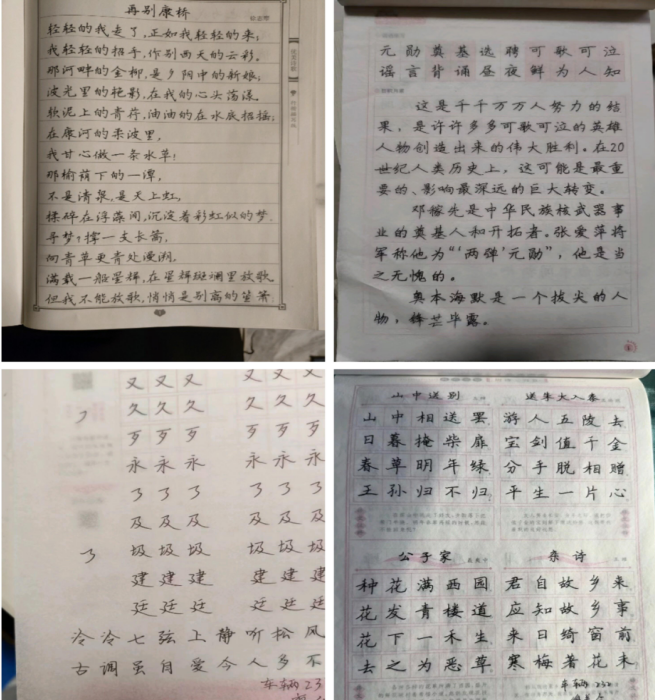 再别康桥
轻轻的我走了,正如我轻轻的来;
我轻轻的招手,作别西天的云彩。
那河畔的金柳,是夕阳中的新娘;
波光里的艳影,在我的心头荡漾。
软泥上的青荇,油油的在水底招摇;
在康河的柔波里,
我甘心做一条水草!
那榆荫下的一潭,
不是清泉,是天上虹,
揉碎在浮藻间,沉淀着彩虹似的梦。
寻梦?撑一支长篙,
向青草更青处漫溯,
满载一船星辉,在星辉斑斓里放歌
但我不能放歌,悄悄是别离的笙箫
元勋奠基选聘可歌可泣
谣言背诵昼夜鲜为人知
这是千千万万人努力的结
果,是许许多多可歌可泣的英雄
人物创造出来的伟大胜利。在20
世纪人类历史上,这可能是最重
要的、影响最深远的巨大转变。
邓稼先是中华民族核武器事
业的奠基人和开拓者。张爱萍将
军称他为“‘两弹’元勋”,他是当
之无愧的。
奥本海默是一个拔尖的人
物,锋芒毕露。
又又又 又又又
久久久 久久久
歹歹歹 歹歹歹
永永永 永永永
了了了 了了了
及及及 及及及
圾圾圾 圾圾圾
建建建 建建建
廷廷廷 廷廷廷
泠泠七弦上静听松风
古调虽自爱今人多不
车辆23
山中送别
山中相送罢
日暮掩柴扉
春草明年绿
王孙归不归
送朱大入秦
游人五陵去
宝剑值千金
分手脱相赠
平生一片心
公子家
种花满西园
花发青楼道
花下一禾生
去之为恶草
杂诗
君自故乡来
应知故乡事
来日绮窗前
寒梅著花未
车辆232